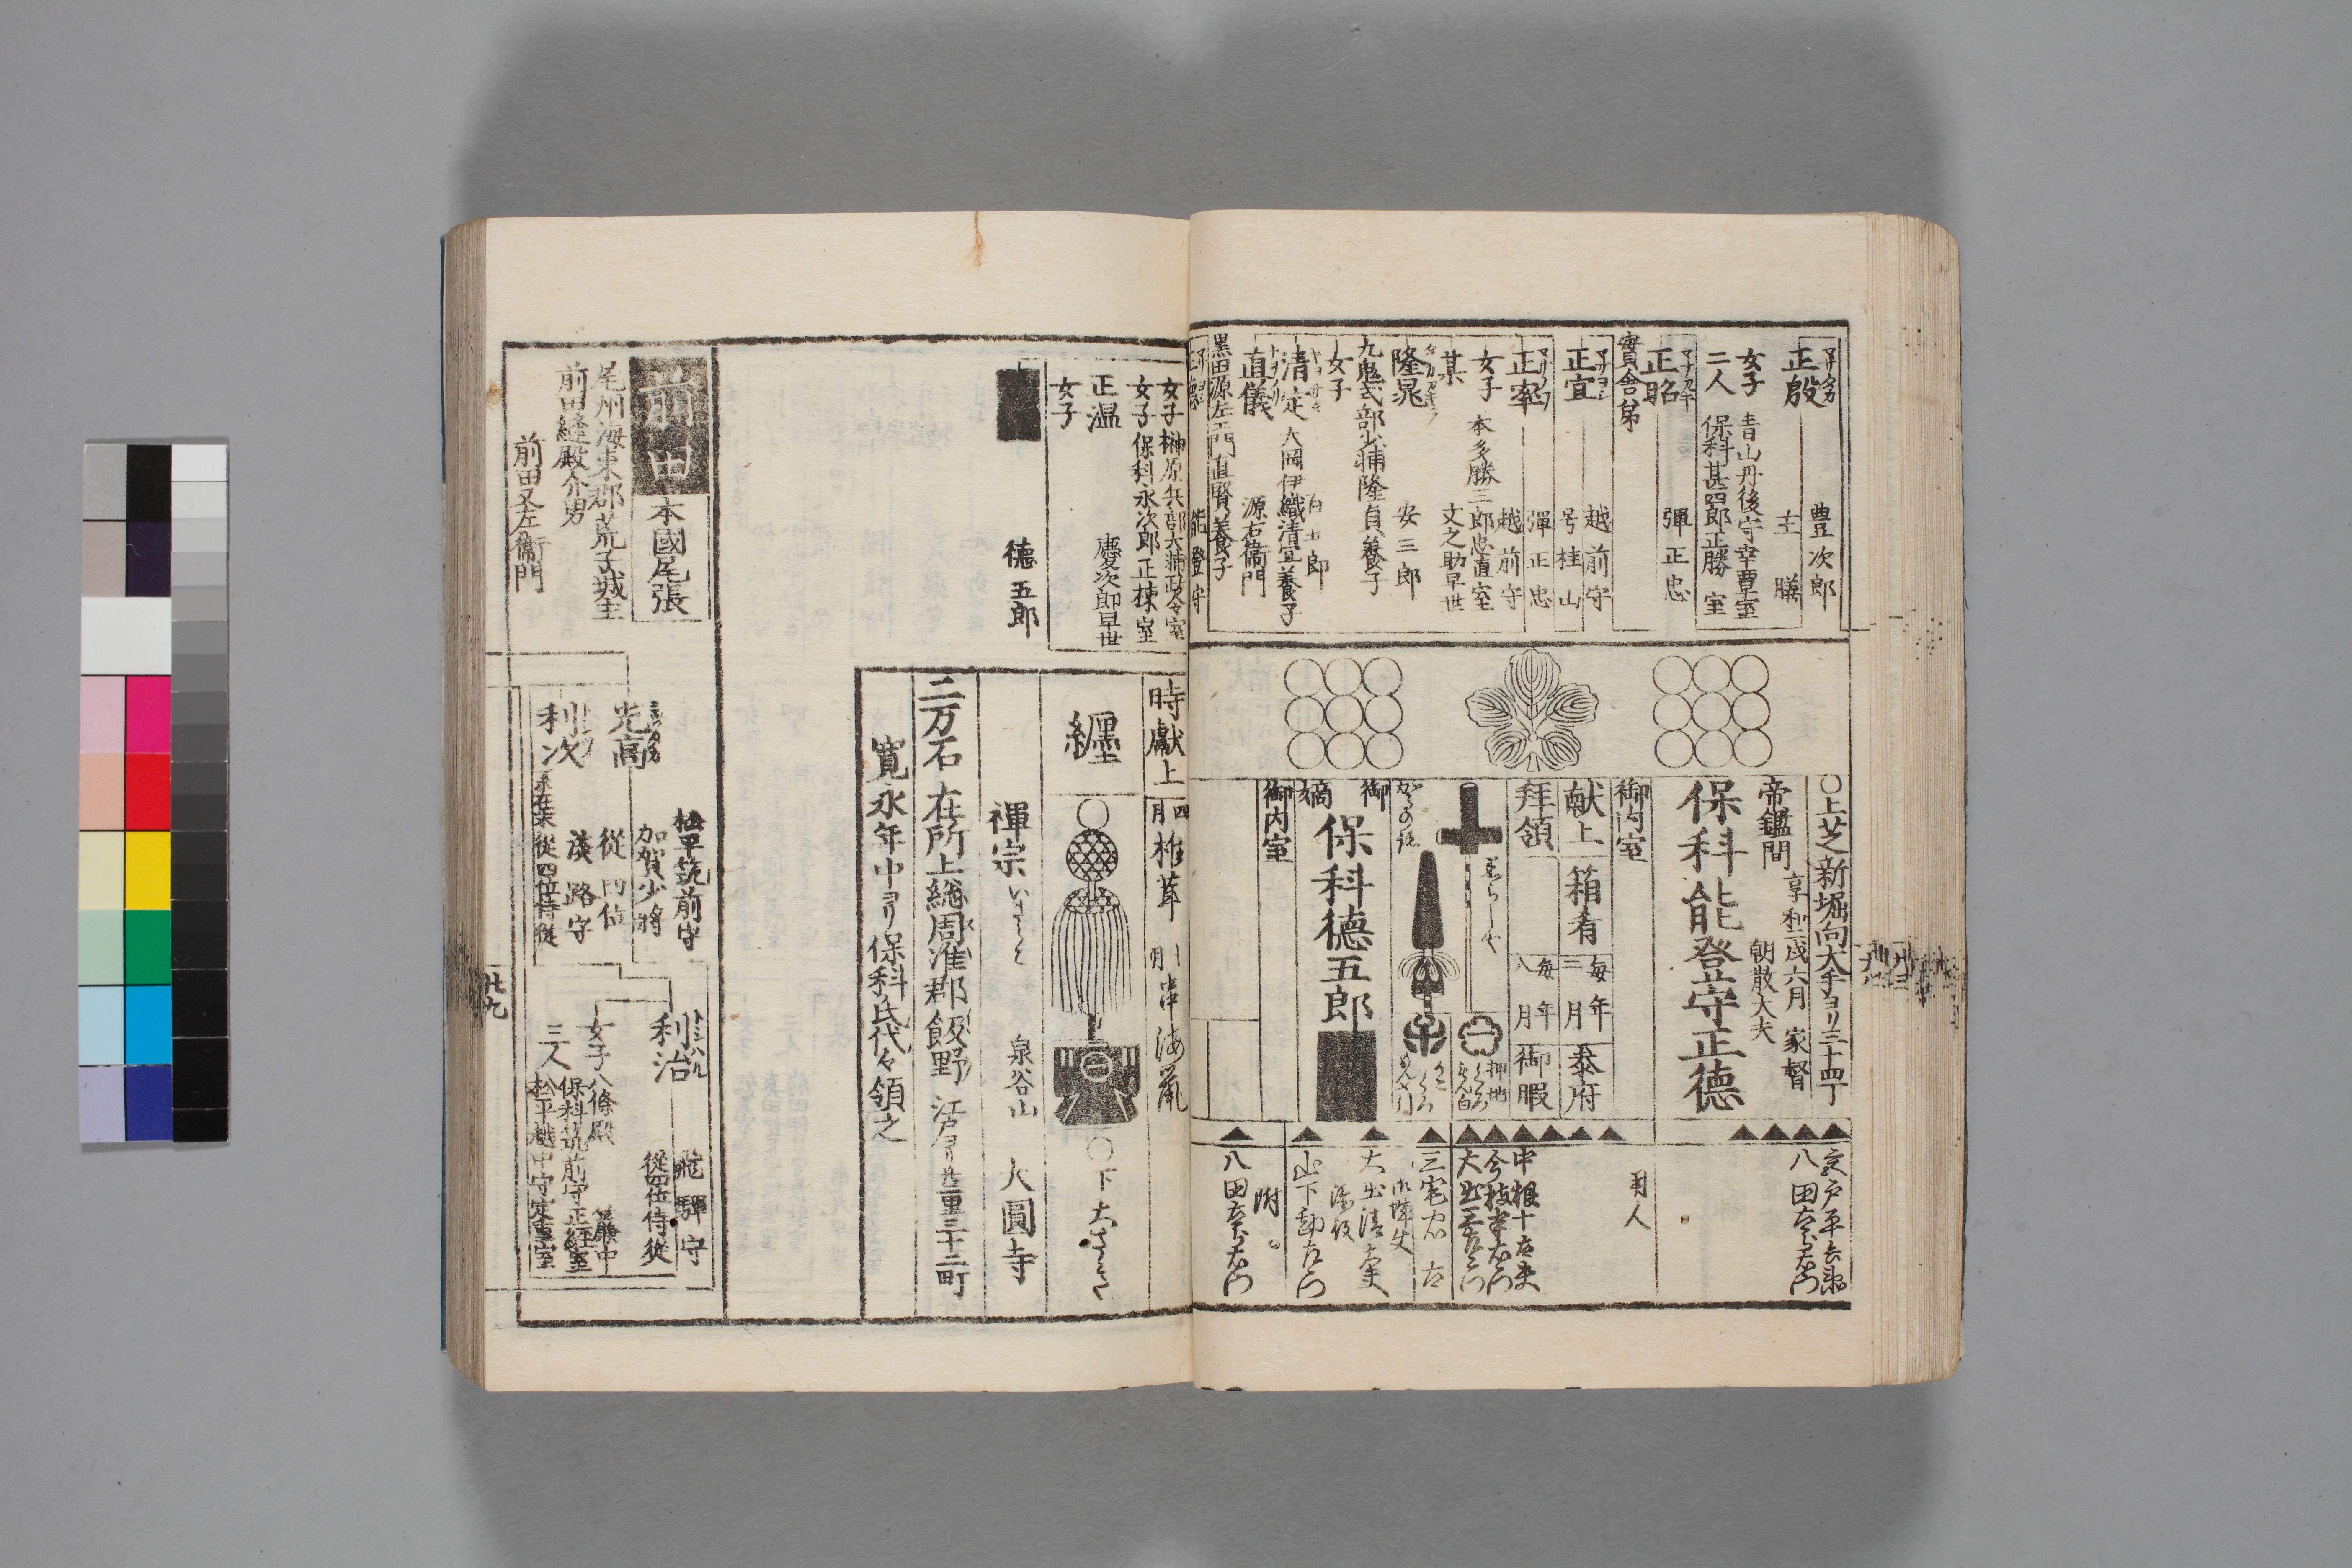 正殷
マサタカ
豊次郎
主膳
女子
二人
青山丹後守幸覃室
保科甚四郎正勝室
正昭
弾正忠
實舎弟
正宜
マサヨシ
越前守
号桂山
正率
弾正忠
越前守
女子
本多勝三郎忠直室
某
文之助早世
隆晁
安三郎
九鬼式部少輔隆貞養子
女子
清定
大岡伊織清宜養子
直儀
源右衞門
黒田源左エ門直賢養子
能登守
○上芝新堀向大手ヨリ三十四丁
帝鑑間
享和二戌六月家督
朝散大夫
保科能登守正徳
御内室
献上
箱肴
毎年
二月
参府
拝領
毎年
八月
御暇
押地
御嫡
保科徳五郎
御内室
用人
八田
中根十
今枝
大出
三宅
大出
山下
附
八田
女子
榊原兵部大輔政令室
女子
保科永次郎正棟室
正温
慶次郎早世
女子
徳五郎
時献上
四月
椎茸
月
串海鼠
纏
禅宗
泉谷山
大圓寺
二万石
在所上総周准郡飯野
江戸ヨリ
三十二町
寛永年中ヨリ保科氏代々領之
前田
本國尾張
尾州海東郡荒子城主
前田縫殿介男
前田又左衛門
光高
松平筑前守
加賀少将
従四位
利次
淡路守
系在末
従四位侍従
利治
トシハル
飛騨守
従四位侍従
女子
三人
八條殿簾中
保科筑前守正経室
松平越中守定重室
廿九